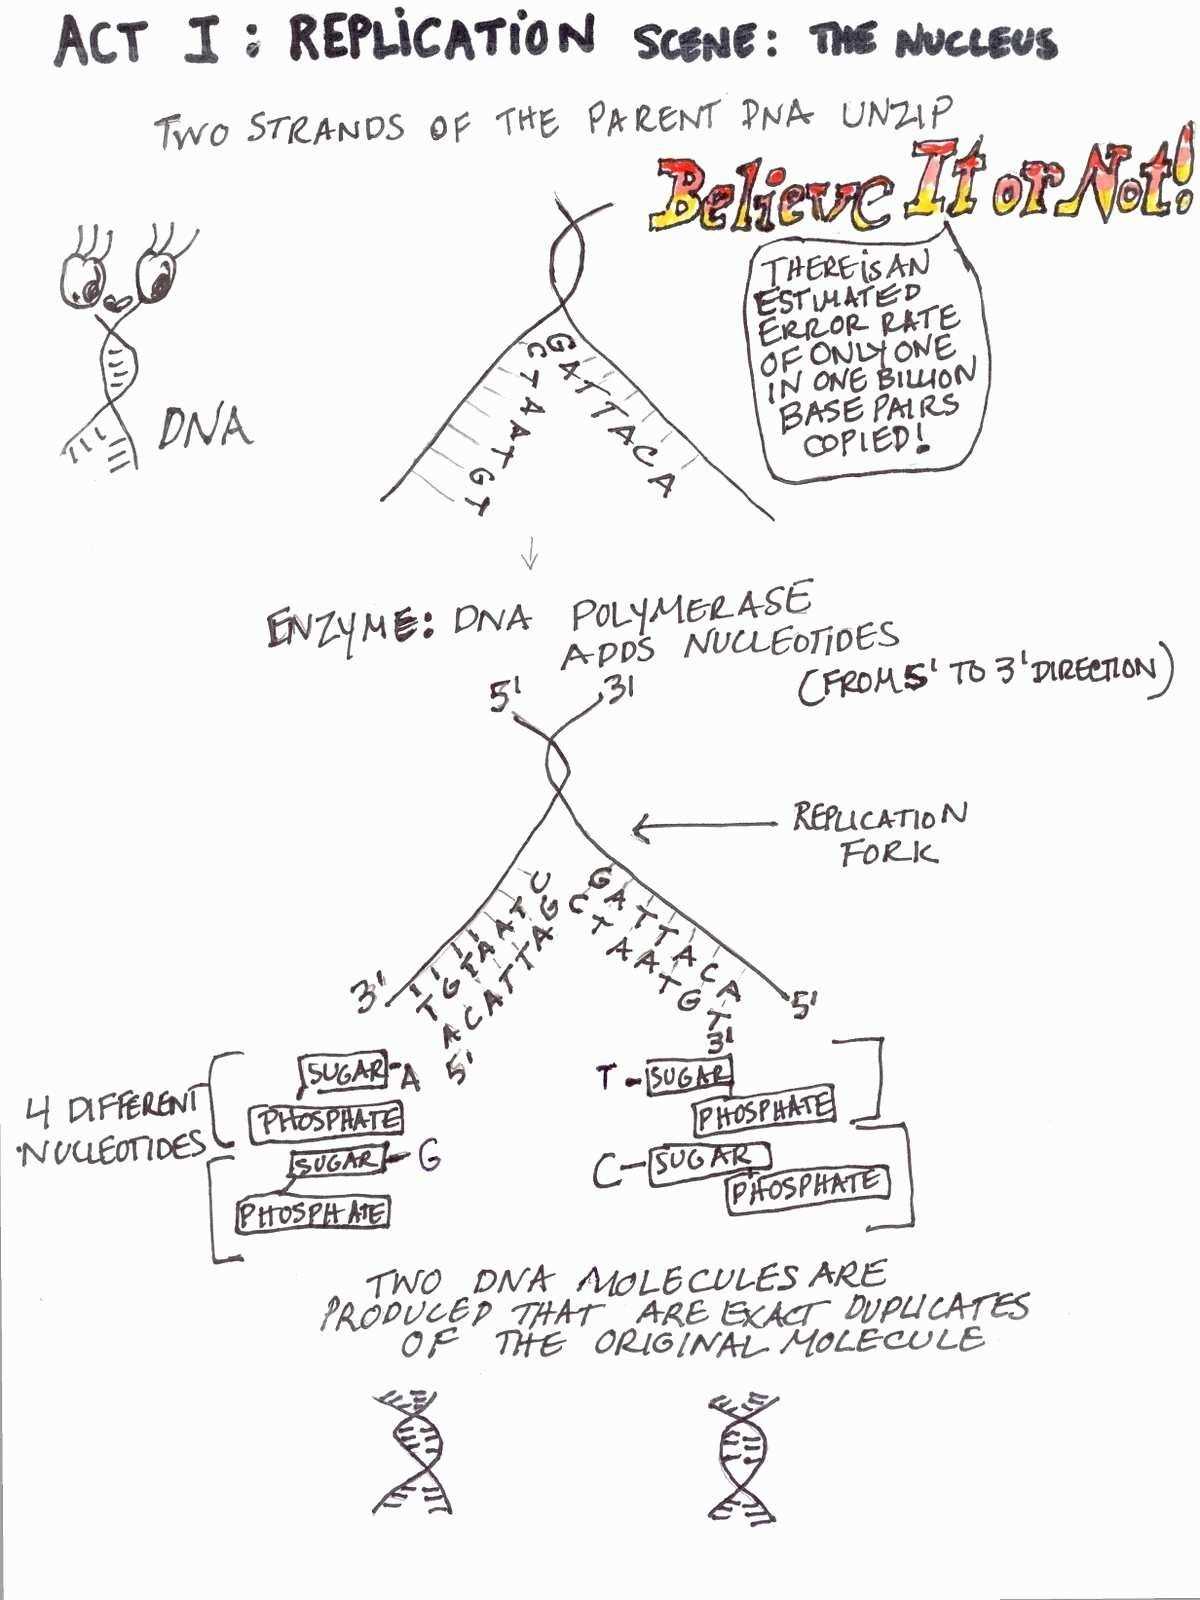 ACT I: REPLiCATiON SCENE: THE NUCLEUS
TWO STRANDS OF THE PARENT DNA UNZIP
Believe It or Not!
THERE is AN
ESTIMATED
ERROR RATE
OF ONLY ONE
IN ONE BILLION
BASE PAIRS
COPIED!
DNA
GATTACA
CTAATGT
ENZYME: DNA POLYMERASE
ADDS NUCLEOTIDES
(FROM 5' TO 3' DIRECTION)
5' 3'
REPLICATION
FORK
CTAATGT
GATTACA
GATTACA
CTAATGT
3' 5'
5' 3'
4 DIFFERENT
NUCLEOTIDES
SUGAR - A
PHOSPHATE
SUGAR - G
PHOSPHATE
T - SUGAR
PHOSPHATE
C - SUGAR
PHOSPHATE
TWO DNA MOLECULES ARE
PRODUCED THAT ARE EXACT DUPLICATES
OF THE ORIGINAL MOLECULE